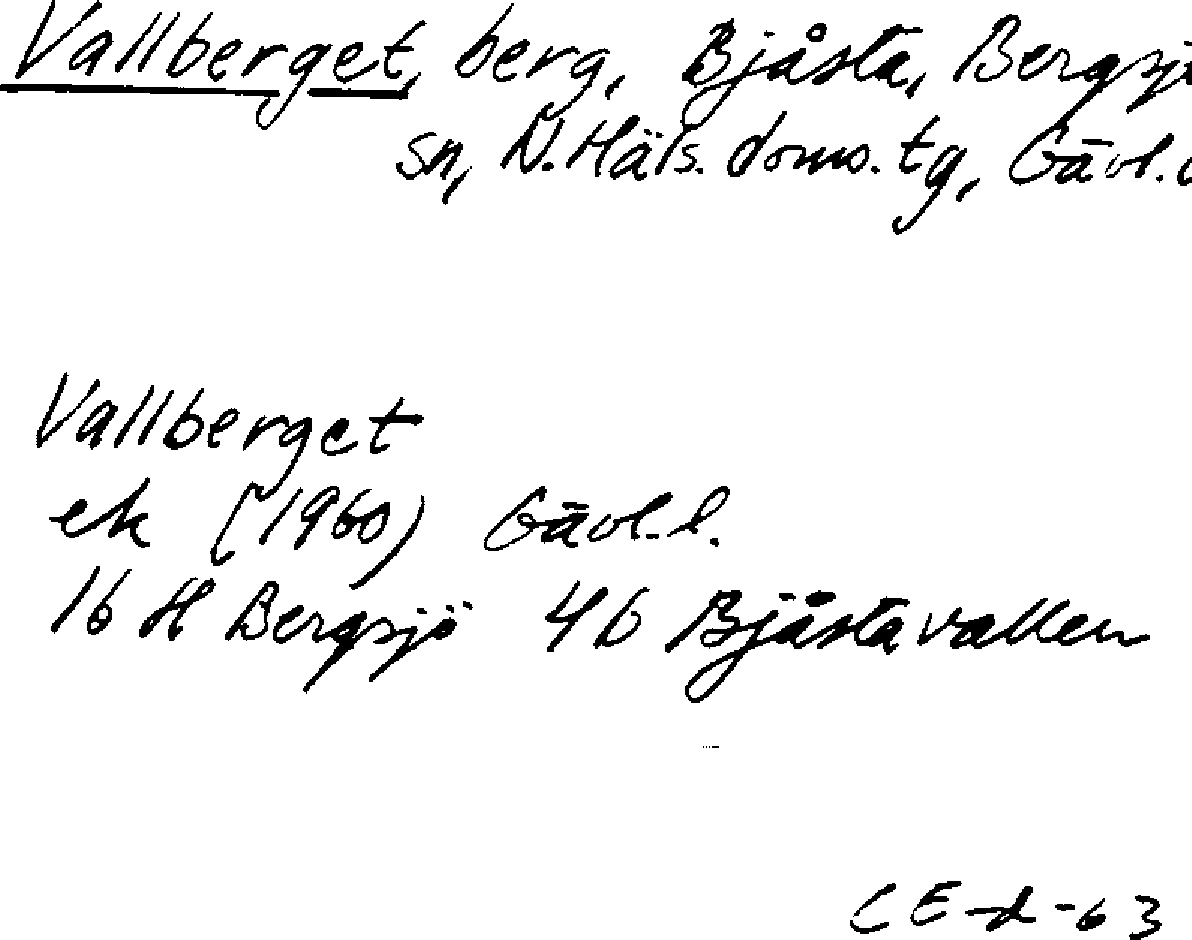 Vallberget, berg, Bjåsta, Bergsjö
sn, N. Häls. doms. tg, Gävl. l
Vallberget
ek (1960) Gävl. l.
16 H Bergsjö 4b Bjåstavallen
CE-d-63